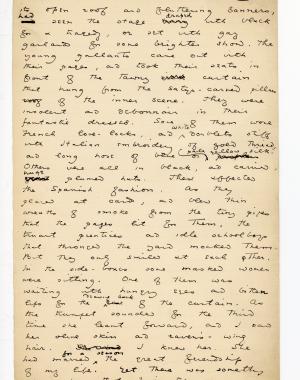 its open roof and fluttering banners,
had seen the stage draped with black
for a tragedy, or set with gay
garlands for some brighter show. The
young gallants came out with
their pages, and took their seats in
front of the tawny curtain
that hung from the satyr-carved pillars
of the inner scene. They were
insolent and debonnair in their
fantastic dresses. Some of them wore
French love-locks, and white doublets stiff
with Italian embroidery of gold thread,
and long hose of blue or pale yellow silk.
Others were all in black, and carried
huge plumed hats. These affected
the Spanish fashion. As they
played at cards, and blew thin
wreaths of smoke from the tiny pipes
that the pages lit for them, the
truant prentices and idle schoolboys
that thronged the yard mocked them.
But they only smiled at each other.
In the side-boxes some masked women
were sitting. One of them was
waiting with hungry eyes and bitten
lips for the drawing back of the curtain. As
the trumpet sounded for the third
time she leant forward, and I saw
her olive skin and raven's-wing
hair. I knew her. She
had marred for a season the great friendship
of my life. Yet there was something